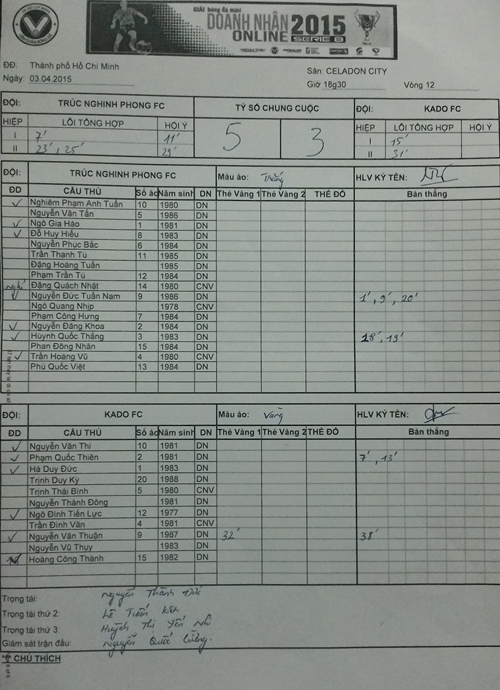 GIẢI bóng đá mini
DOANH NHÂN 2015
ONLINE SERIE B
ĐĐ: Thành phố Hồ Chí Minh Sân: CELADON CITY
Ngày: 03.04.2015 Giờ 18g30 Vòng 12
ĐỘI: TRÚC NGHINH PHONG FC TỶ SỐ CHUNG CUỘC ĐỘI: KADO FC
HIỆP LỖI TỔNG HỢP HỘI Ý 5 3 HIỆP LỖI TỔNG HỢP HỘI Ý
I 7' 11' I 15'
II 23', 25' 29' II 31'
ĐỘI: TRÚC NGHINH PHONG FC Màu áo: Trắng HLV KÝ TÊN:
ĐD CẦU THỦ Số áo Năm sinh DN Thẻ Vàng 1 Thẻ Vàng 2 THẺ ĐỎ Bàn thắng
✓ Nghiêm Phạm Anh Tuấn 10 1980 DN
Nguyễn Văn Tấn 5 1986 DN
✓ Ngô Gia Hào 1 1981 DN
✓ Đỗ Huy Hiếu 8 1983 DN
Nguyễn Phục Bắc 6 1984 DN
Trần Thanh Tú 11 1985 DN
Đặng Hoàng Tuấn 1985 DN
Phạm Trần Tú 12 1984 DN
nghỉ Đặng Quách Nhật 14 1980 CNV
✓ Nguyễn Đức Tuấn Nam 9 1986 DN 1', 9', 20'
Ngô Quang Nhịp 1978 CNV
Phạm Công Hưng 7 1984 DN
✓ Nguyễn Đăng Khoa 2 1984 DN
✓ Huỳnh Quốc Thắng 3 1983 DN 18', 19'
Phan Đông Nhân 15 1984 DN
✓ Trần Hoàng Vũ 4 1980 CNV
Phú Quốc Việt 13 1984 DN
ĐỘI: KADO FC Màu áo: Vàng HLV KÝ TÊN:
ĐD CẦU THỦ Số áo Năm sinh DN Thẻ Vàng 1 Thẻ Vàng 2 THẺ ĐỎ Bàn thắng
✓ Nguyễn Văn Thi 10 1981 DN
✓ Phạm Quốc Thiên 2 1981 DN 7', 13'
✓ Hà Duy Đức 1 1983 DN
Trịnh Duy Kỳ 20 1988 DN
Trịnh Thái Bình 5 1980 CNV
Nguyễn Thành Đông 1981 DN
✓ Ngô Đình Tiến Lực 12 1977 DN
Trần Đình Văn 4 1981 CNV
✓ Nguyễn Văn Thuận 9 1987 DN 32' 38'
Nguyễn Vũ Thụy 1983 DN
Hoàng Công Thành 15 1982 DN
Trọng tài: Nguyễn Thành Đức
Trọng tài thứ 2: Lê Tuấn
Trọng tài thứ 3: Huỳnh Thị Yến
Giám sát trận đấu: Nguyễn Quốc
CHÚ THÍCH